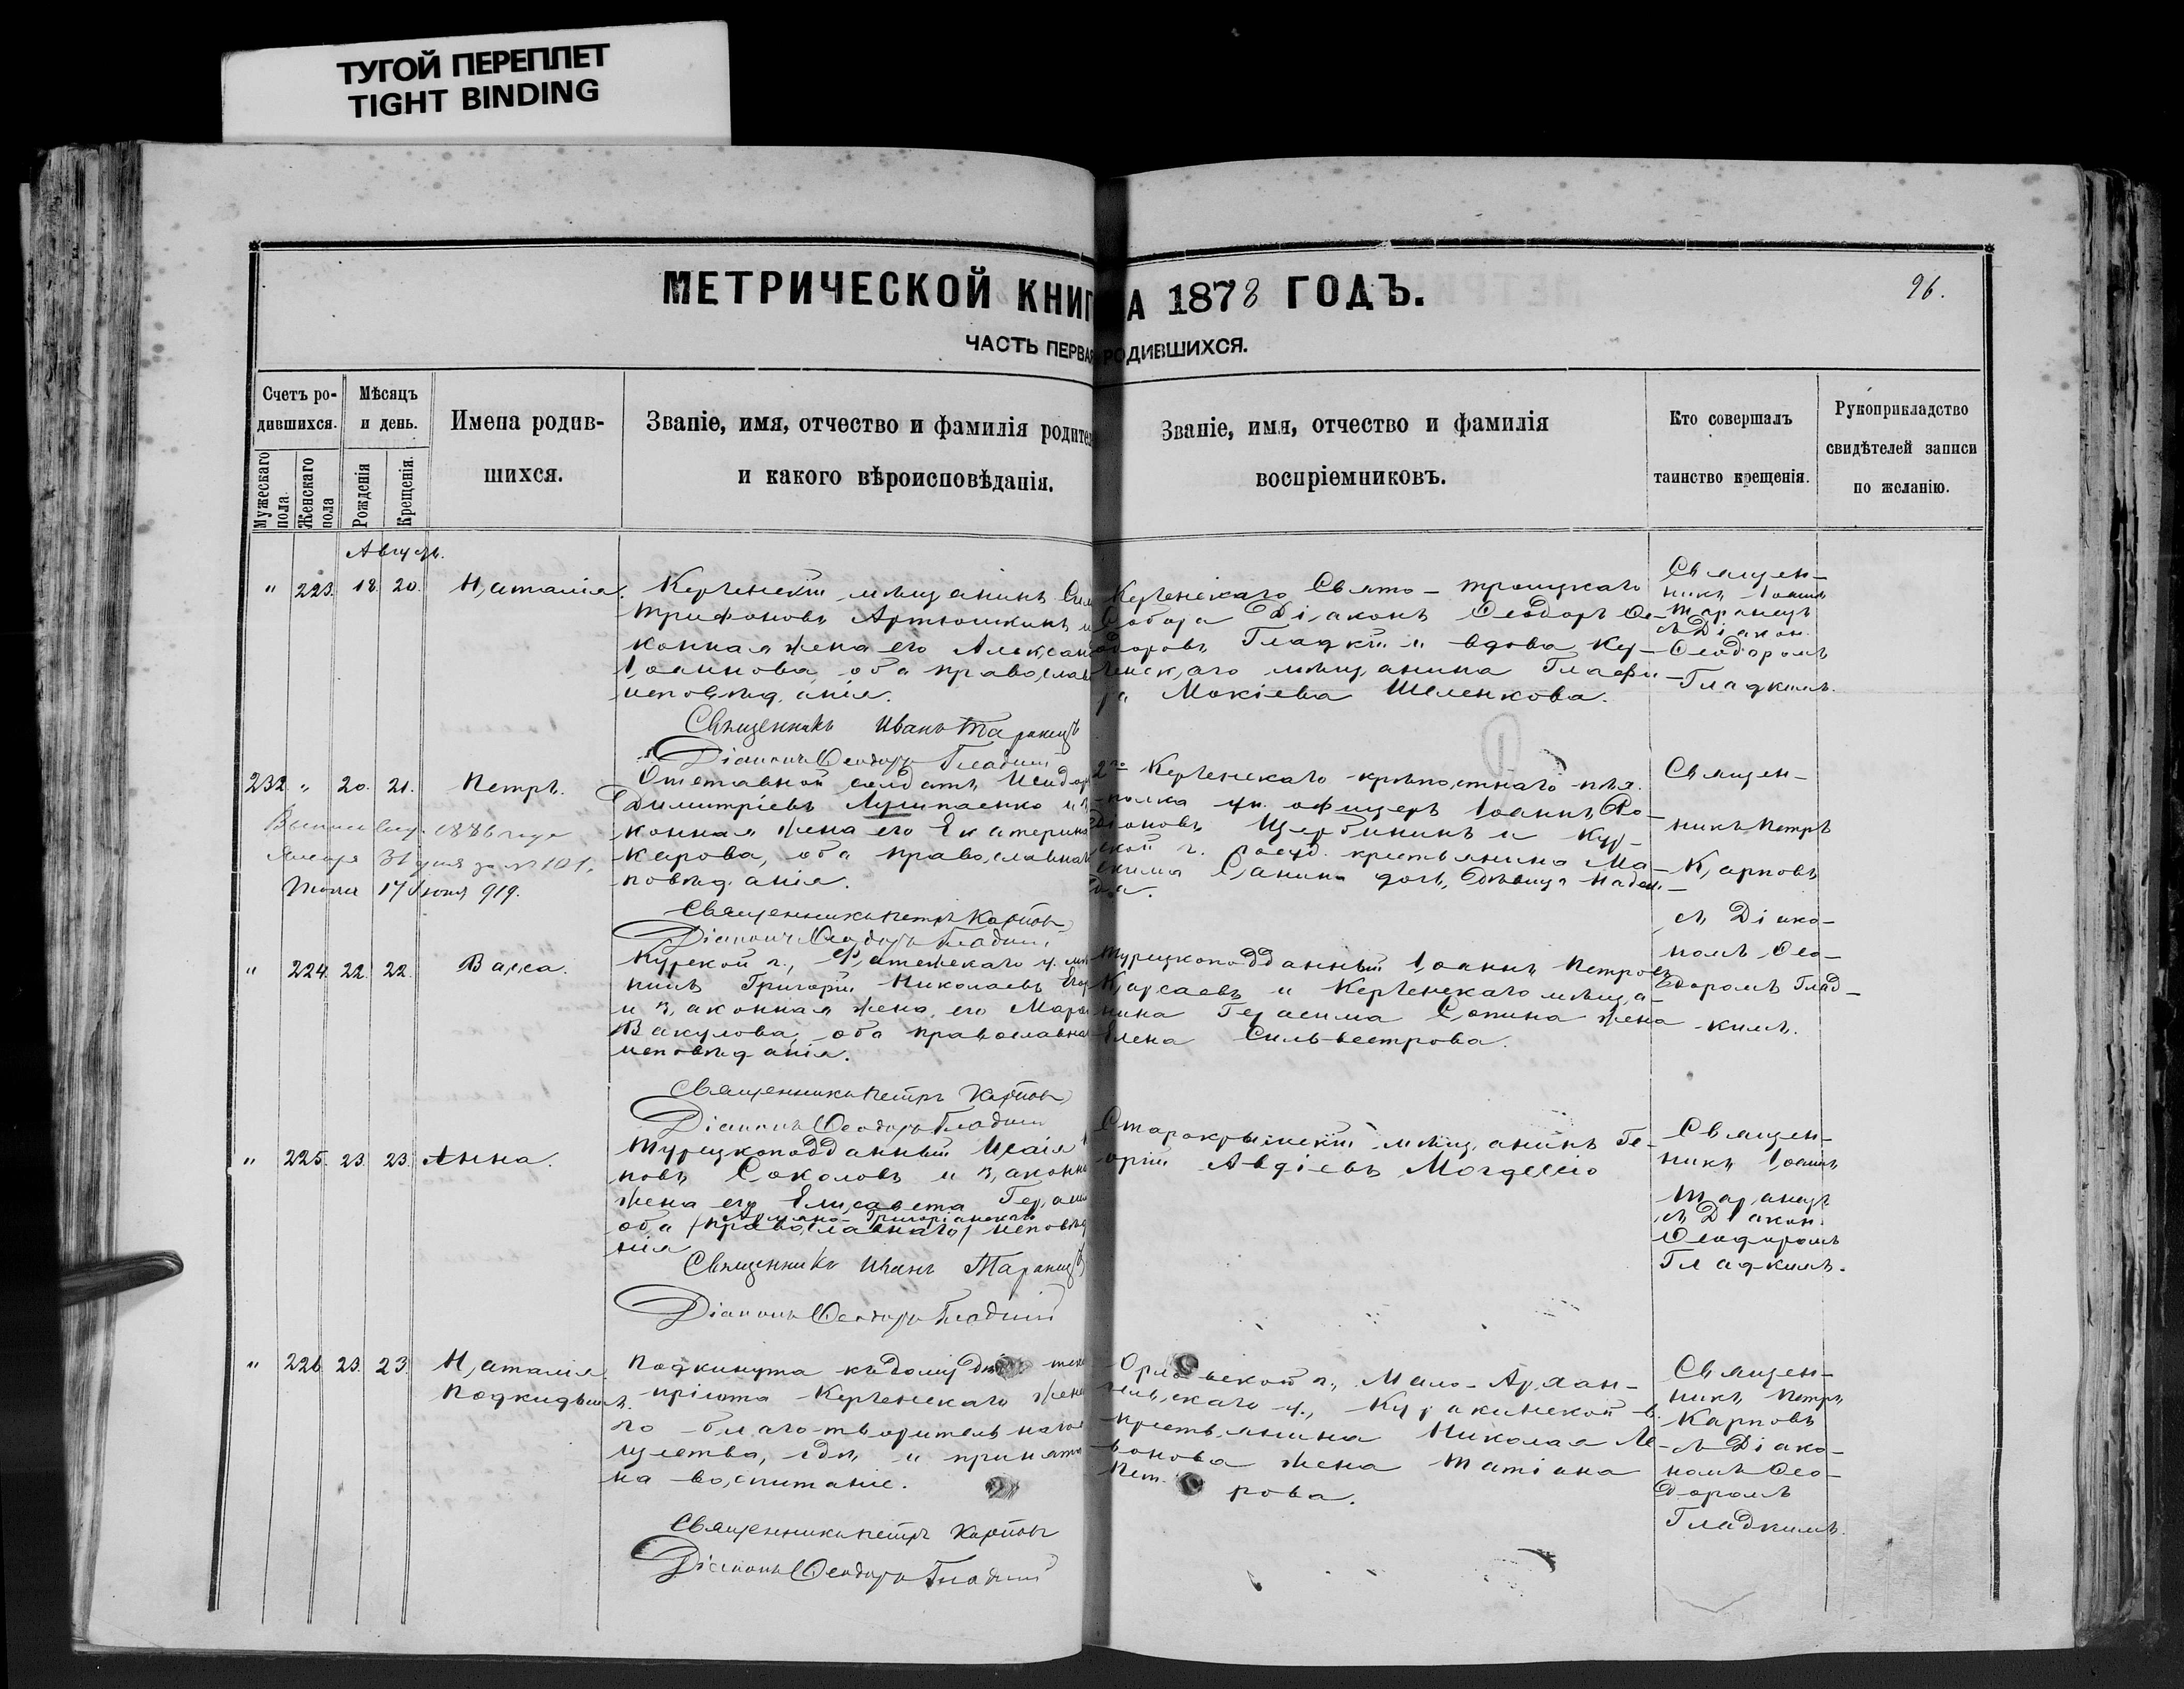 ТУГОЙ ПЕРЕПЛЕТ
TIGHT BINDING
МЕТРИЧЕСКОЙ КНИГ
А 1878 ГОДЪ.
96.
ЧАСТЬ ПЕРВАЯ
РОДИВШИХСЯ.
Счетъ ро-
дившихся.
Мужескаго
пола.
Женскаго
пола
Мѣсяцъ
и день.
Рожденія
Крещенія.
Имена родив-
шихся.
Званіе, имя, отчество и фамилія родител
и какого вѣроисповѣданія.
Званіе, имя, отчество и фамилія
воспріемниковъ.
Кто совершалъ
таинство крещенія.
Рукоприкладство
свидѣтелей записи
по желанію.
Августъ.
" 223. 18. 20. Наталія.
Керченскій мѣщанинъ
Трифоновъ Артюшкинъ и
конная жена его Алексан
Іоаннова, оба православ
исповѣданія.
Священникъ Иванъ Таранецъ
Діаконъ Ѳеодоръ Гладкій
Керченскаго Свято-Троицкаго
Собора Діаконъ Ѳеодоръ Ѳе-
одоровъ Гладкій и вдова Кер-
ченскаго мѣщанина Глафи-
ра Мокіева Шеленкова.
Священ-
никъ Іоаннъ
Таранецъ
съ Діакон.
Ѳеодоромъ
Гладкимъ.
232 " 20. 21. Петръ.
1886 года
Января 31 дня за № 101.
17 Іюня 919.
Отставной солдатъ Исидор
Димитріевъ Лушпаенко и
конная жена его Екатерина
Карова, оба православна
повѣданія.
Священникъ Петръ Карповъ
Діаконъ Ѳеодоръ Гладкій
2го Керченскаго крѣпостнаго пѣх.
полка ун. офицеръ Іоаннъ Ро-
діоновъ Щербининъ и Кур-
ской г. госуд. крестьянина Ма-
ксима Санина дочь, дѣвица Надеж-
да.
Священ-
никъ Петръ
Карповъ
съ Діако-
номъ Ѳео-
доромъ Глад-
кимъ.
" 224. 22. 22. Васса.
Курской г., Фатежскаго у. мѣ
нинъ Григорій Николаевъ
и законная жена его
Вакулова, оба православна
исповѣданія.
Священникъ Петръ Карповъ
Діаконъ Ѳеодоръ Гладкій
Турецкоподданный Іоаннъ Петровъ
Карсаевъ и Керченскаго мѣща-
нина Герасима Сопина жена
Елена Сильвестрова.
" 225. 23. 23. Анна.
Турецкоподданный Исаія
новъ Соколовъ и законна
жена его Елисавета
Армяно-Григоріанскаго
оба /православнаго/ исповѣд
нія
Священникъ Иванъ Таранецъ
Діаконъ Ѳеодоръ Гладкій
Старокрымскій мѣщанинъ Ге-
оргій Авдіевъ
Священ-
никъ Іоаннъ
Таранецъ
съ Діакон.
Ѳеодоромъ
Гладкимъ.
" 226. 23. 23. Наталія
Подкидышъ.
Подкинута къ дому
пріюта Керченскаго Жен
го благотворительнаго
щества, гдѣ и принята
на воспитаніе.
Священникъ Петръ Карповъ
Діаконъ Ѳеодоръ Гладкій
Орловской г., Мало-Архан-
гельскаго у., Куракинской в.
крестьянина Николая Ле-
онова жена Татіана
Пет- рова.
Священ-
никъ Петръ
Карповъ
съ Діако-
номъ Ѳео-
доромъ
Гладкимъ.